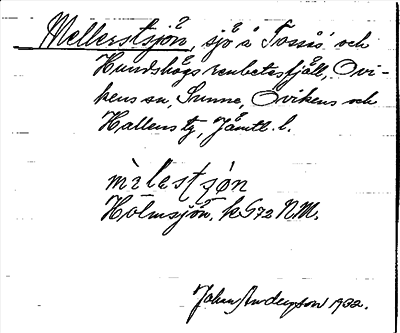 Mellerstsjön, sjö å Tossås och
Hundshögs renbetesfjäll, Ovi-
kens sn, Sunne, Ovikens och
Hallens tg, Jämtl. l.
mèlestʃón
Holmsjön, k. G72 NM.
John Anderson 1932.